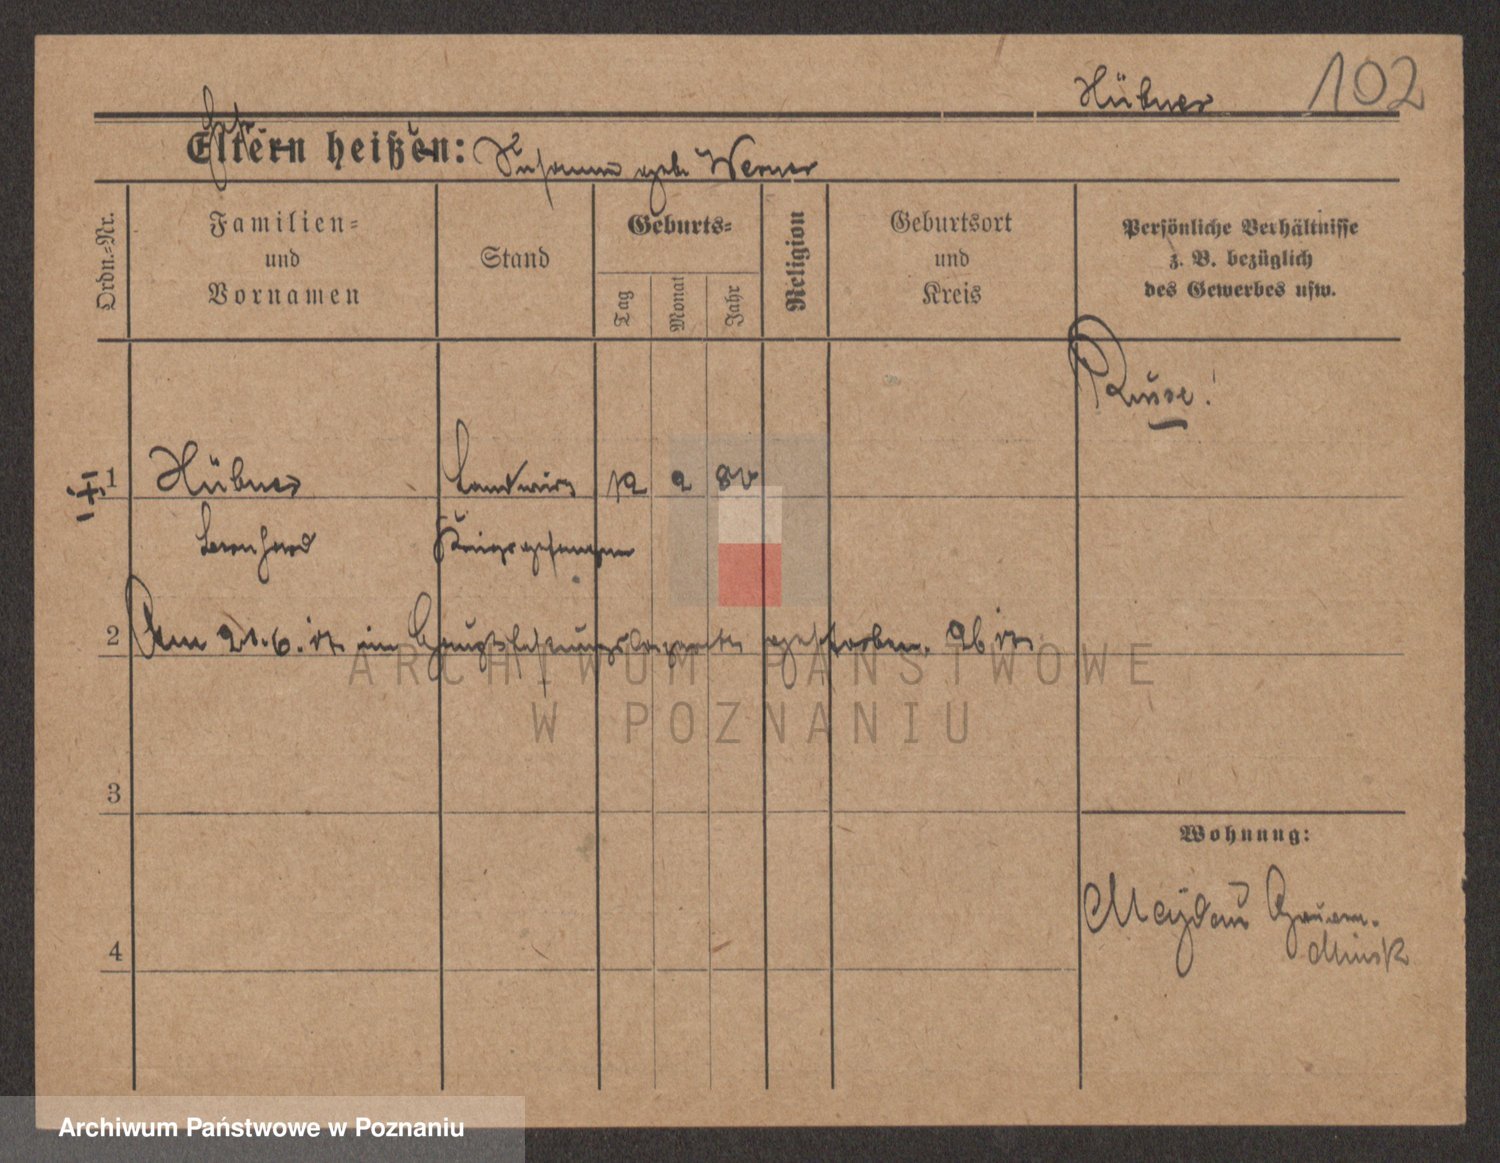 Hübner 102
Eltern heißen: Susanna geb. Werner
Ordn.-Nr.
Familien-
und
Vornamen
Stand
Geburts-
Tag
Monat
Jahr
Religion
Geburtsort
und
Kreis
Persönliche Verhältnisse
z. B. bezüglich
des Gewerbes usw.
Russe!
1 Hübner Landwirt 12 2 80
Bernhard Kriegsgefangen
2 Am 21. 6. 17 im Hauptfestungslazarett gestorben.
3
Wohnung:
Minsk
4
ARCHIWUM PAŃSTWOWE
W POZNANIU
Archiwum Państwowe w Poznaniu